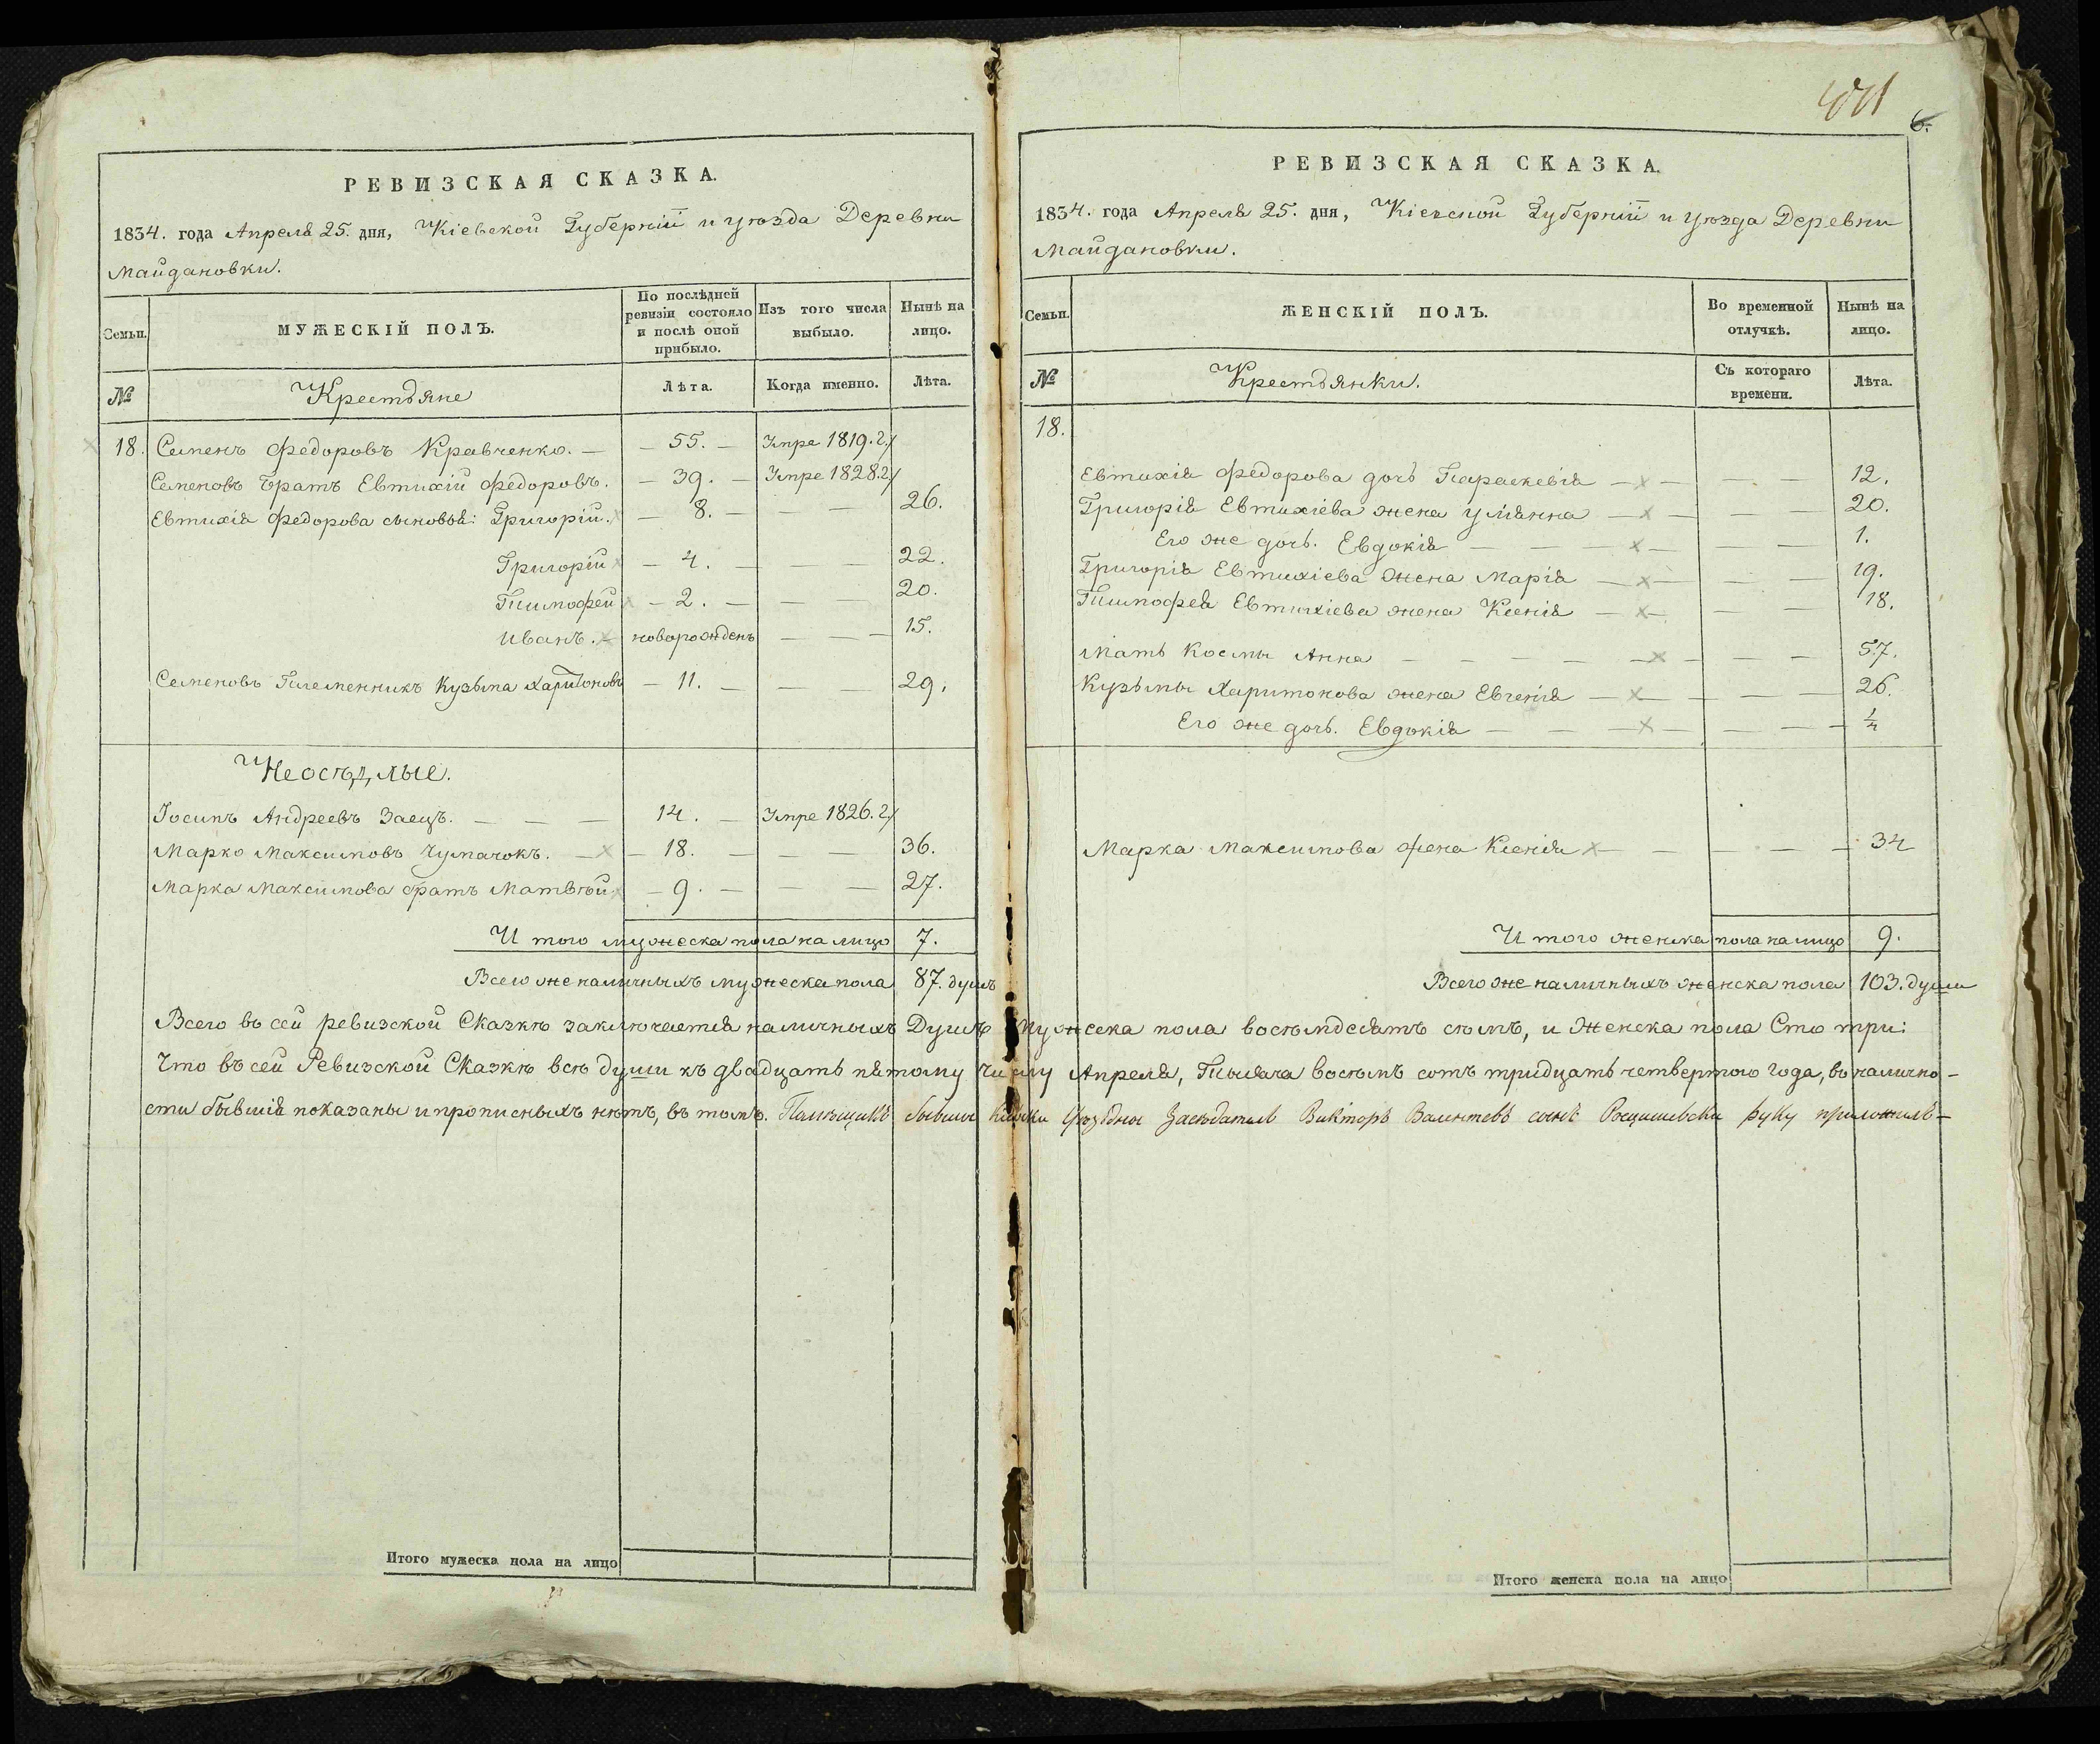 РЕВИЗСКАЯ СКАЗКА.
1834. года Апреля 25. дня, Кіевской Губерніи и уѣзда Деревни
Майдановки.
Семьи.
МУЖЕСКІЙ ПОЛЪ.
По послѣдней ревизіи состояло и послѣ оной прибыло.
Изъ того числа выбыло.
Нынѣ на лицо.
№
Крестьяне
Лѣта.
Когда именно.
Лѣта.
18. Семенъ Федоровъ Кравченко. — — 55. — Умре 1819. г.
Семеновъ Братъ Евтихій Федоровъ. — 39. — Умре 1828. г.
Евтихія Федорова сыновья: Григорій. — 8. — — — 26.
Григорій — 4. — — — 22.
Тимофей — 2. — — — 20.
Иванъ. — новорожденъ — — — 15.
Семеновъ Племенникъ Кузьма Харитоновъ — 11. — — — 29.
Неосѣдлые.
Іосипъ Андреевъ Заецъ. — — — 14. — Умре 1826. г.
Марко Максимовъ Чумачокъ. — — 18. — — — 36.
Марка Максимова братъ Матвѣй — 9. — — — 27.
И того мужеска пола на лицо 7.
Всего же наличныхъ мужеска пола 87. душъ
Итого мужеска пола на лицо
6.
РЕВИЗСКАЯ СКАЗКА.
1834. года Апреля 25. дня, Кіевской Губерніи и уѣзда Деревни
Майдановки.
Семьи.
ЖЕНСКІЙ ПОЛЪ.
Во временной отлучкѣ.
Нынѣ на лицо.
№
Крестьянки.
Съ котораго времени.
Лѣта.
18.
Евтихія Федорова дочь Параскевія — — — — 12.
Григорія Евтихіева жена Уліанна — — — — 20.
Его же дочь. Евдокія — — — — — 1.
Григорія Евтихіева жена Марія — — — — 19.
Тимофея Евтихіева жена Ксенія — — — 18.
Мать Космы Анна — — — — — — — 57.
Кузьмы Харитонова жена Евгенія — — — — 26.
Его же дочь. Евдокія — — — — — — 1/4
Марка Максимова жена Ксенія — — — — 34
И того женска пола на лицо 9.
Всего же наличныхъ женска пола 103. души
Всего въ сей ревизской Сказкѣ заключается наличныхъ Душъ мужеска пола восѣмдесятъ сѣмъ, и Женска пола Сто три:
Что въ сей Ревизской Сказкѣ всѣ души къ двадцать пятому числу Апреля, Тысяча восѣмъ сотъ тридцать четвертого года, въ налично-
сти бывшія показаны и прописныхъ нѣтъ, въ томъ. Помѣщикъ бывшы Уѣздны Засѣдатель Викторъ сынъ руку приложилъ —
Итого женска пола на лицо